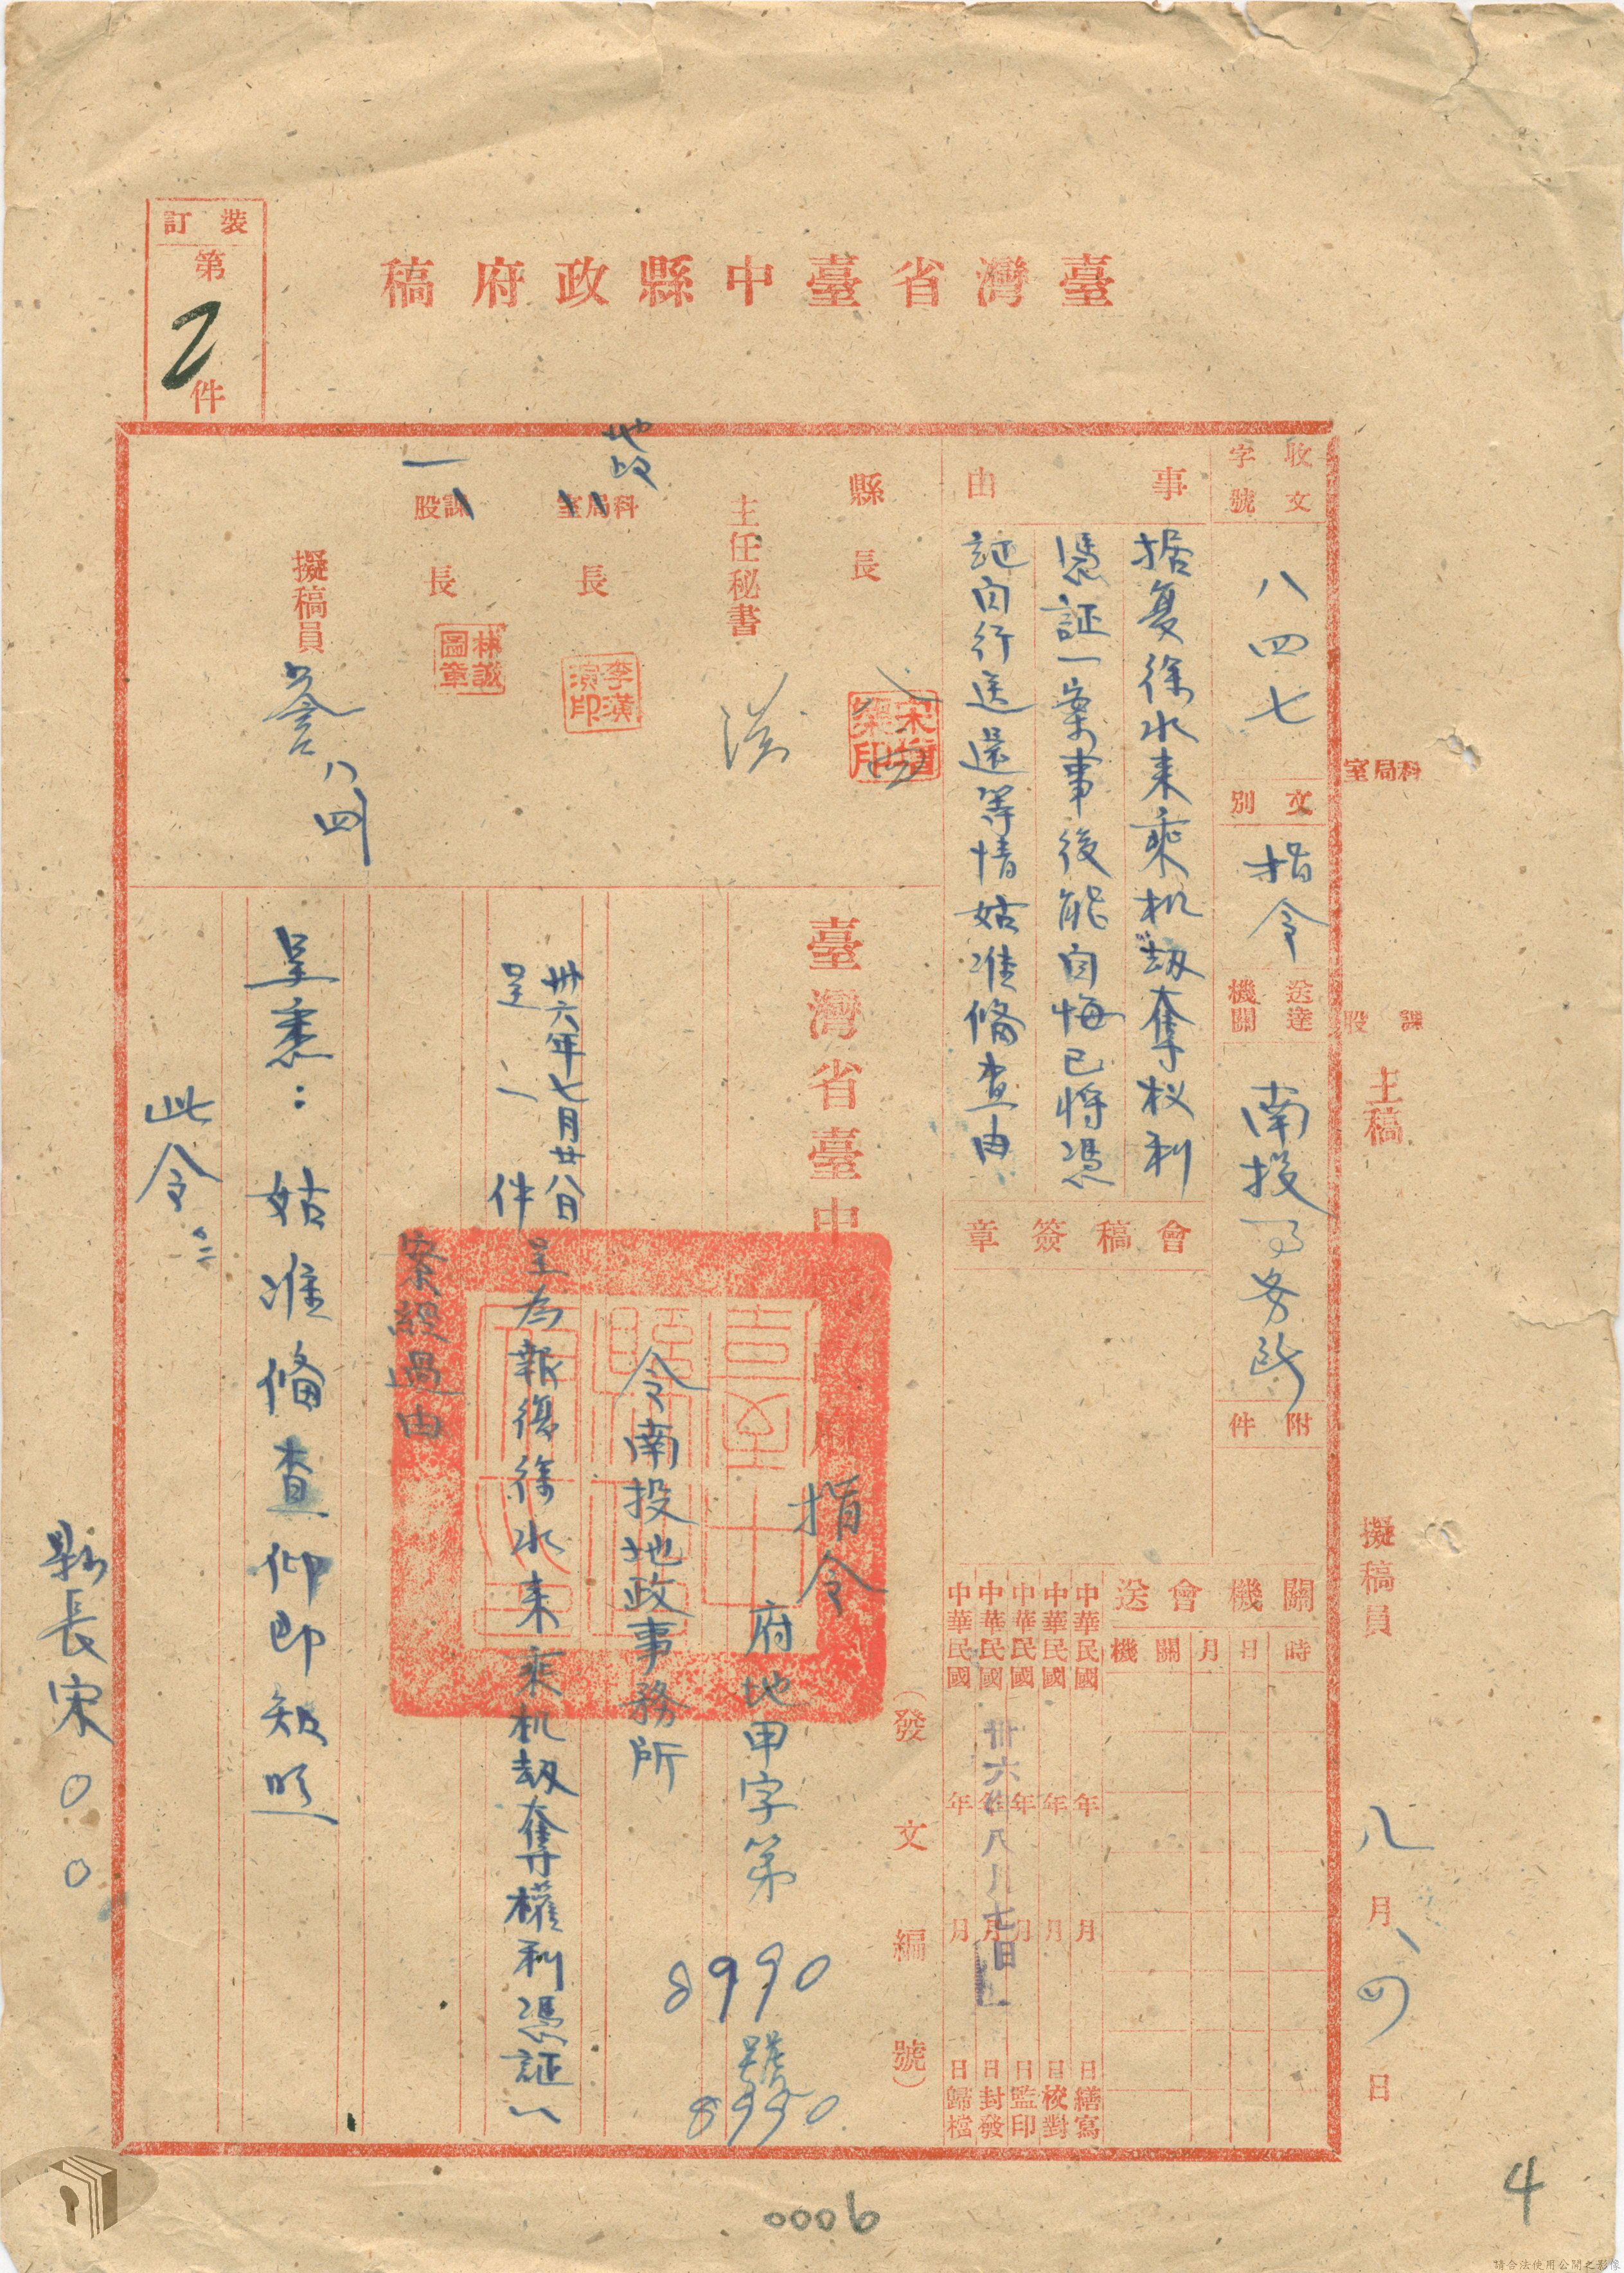 臺灣省臺中縣政府稿
裝訂
第
2
件
收文
字號
八四七
文別
指令
送達
機關
南投
務所
附件
事由
据复徐水来乘机刼奪权利
憑証一案事後能自悔已将憑
証自行送還等情姑准俻查由
會稿簽章
縣長
主任秘書
科局室長
地政
李漢
演印
課股長
一
林誠
圖章
擬稿員
八
四
科局室
課股
主稿
擬稿員
八月四日
關機會送
時日月關機
中華民國年月日繕寫
中華民國年月日校對
中華民國年月日監印
中華民國年月日封發
卅六年八月七日
中華民國年月日歸檔
（發文編號）
臺灣省臺中縣政府
指令
府地甲字第
8990
號
8990
令南投地政事務所
卅六年七月廿八日
呈一件
呈為報復徐水来乘机刼奪權利憑証一
案經過由
呈悉：姑准俻查仰即知照
此令
縣長宋○○
0006
4
請合法使用公開之影像